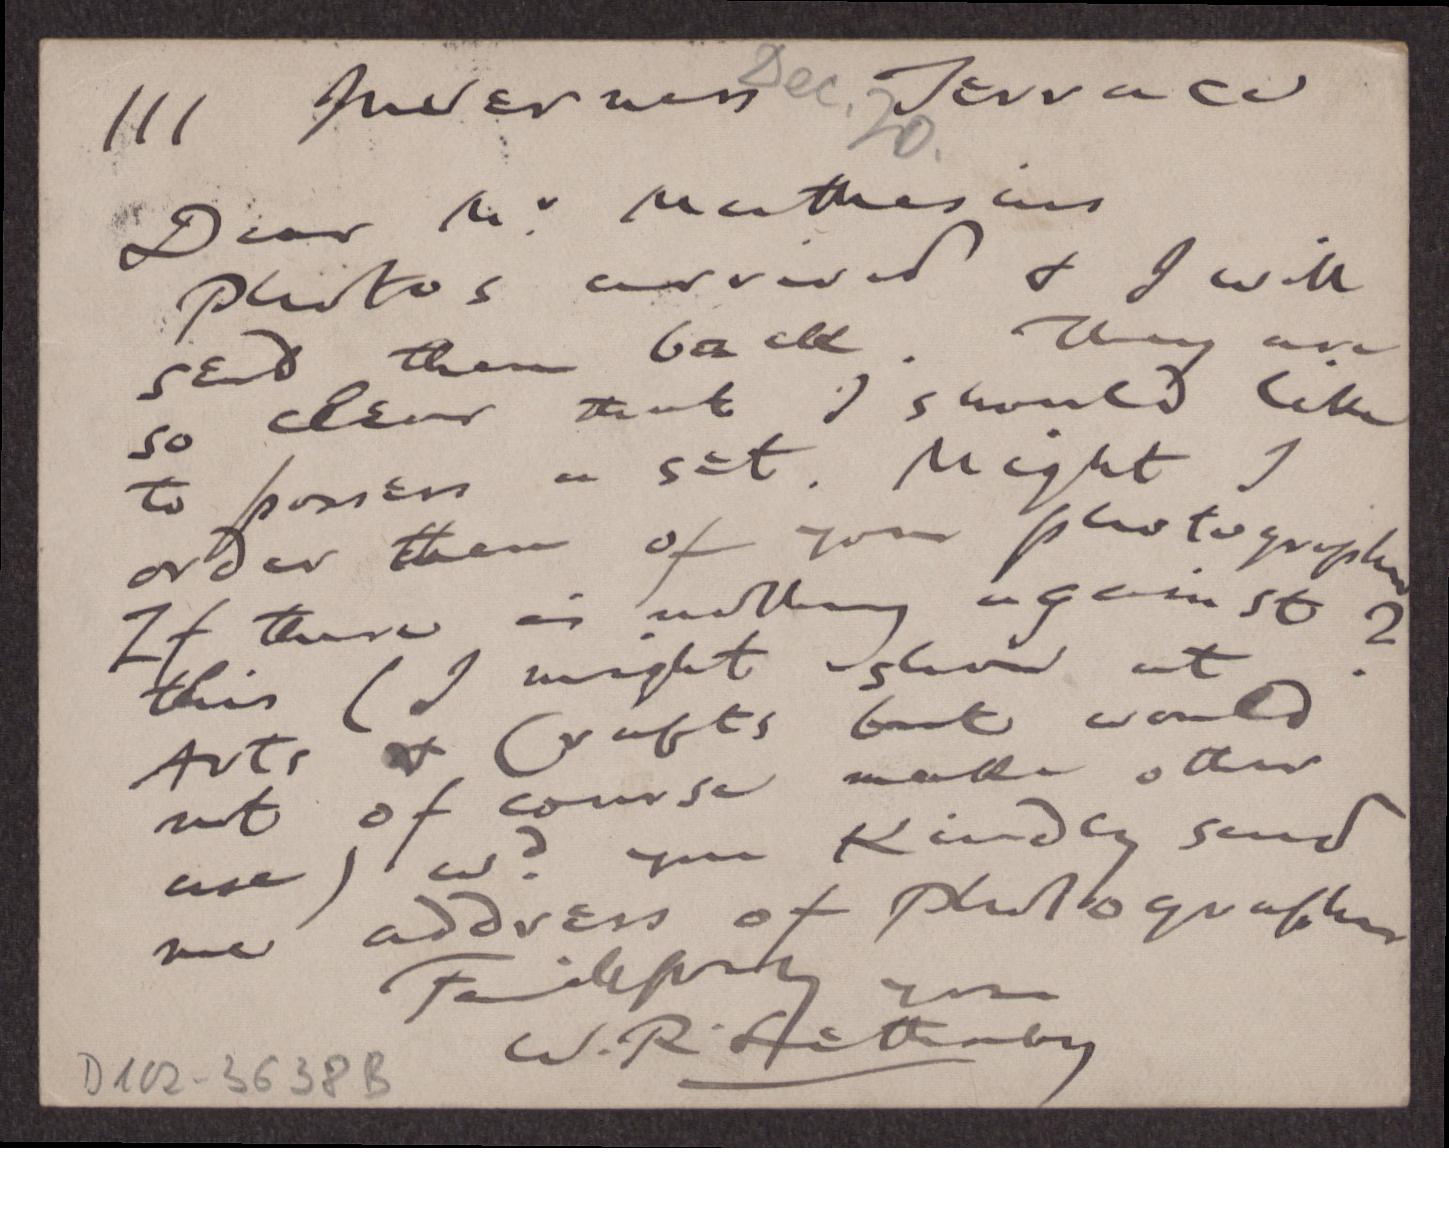 111 Inverness Terrace
Dec. 20.
Dear Mr. Muthesius
Photos arrived & I will
send them back. They are
so clear that I should like
to possess a set. Might I
order them of your photographer
?
If there is nothing against
this (I might show at
Arts & Crafts but would
not of course make other
use) wd. you kindly send
me address of photographer
Faithfully yours
W. R. Lethaby
D102-3638B